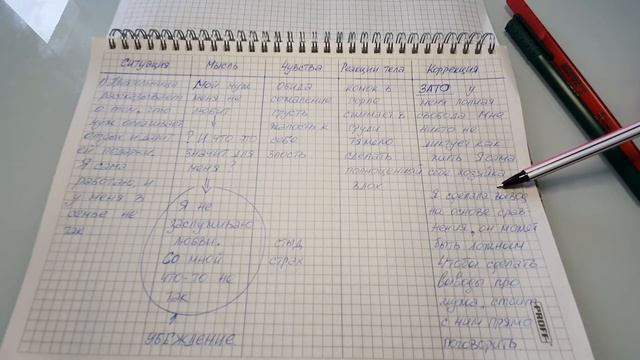 Ситуация
Мысль
Чувства
Реакции тела
Коррекция
рассказывает
о том, что
муж оплачивает
отдых и дарит
ей подарки.
Я сама
работаю, и
у меня в
семье не
так
Мой муж
меня не
любит
? И что это
значит для
меня ?
Я не
заслуживаю
любви.
Со мной
что-то не
так
УБЕЖДЕНИЕ
Обида
сожаление
грусть
жалость к
себе
злость
стыд
страх
комок в
горле
сжимает в
груди
тяжело
сделать
полноценный
вдох
ЗАТО у
меня полная
свобода. Мне
никто не
диктует как
жить. Я сама
себе хозяйка
Я сделала вывод
на основе срав-
нения, он может
быть ложным
Чтобы сделать
выводы про
мужа, стоит
с ним прямо
поговорить
PROFF